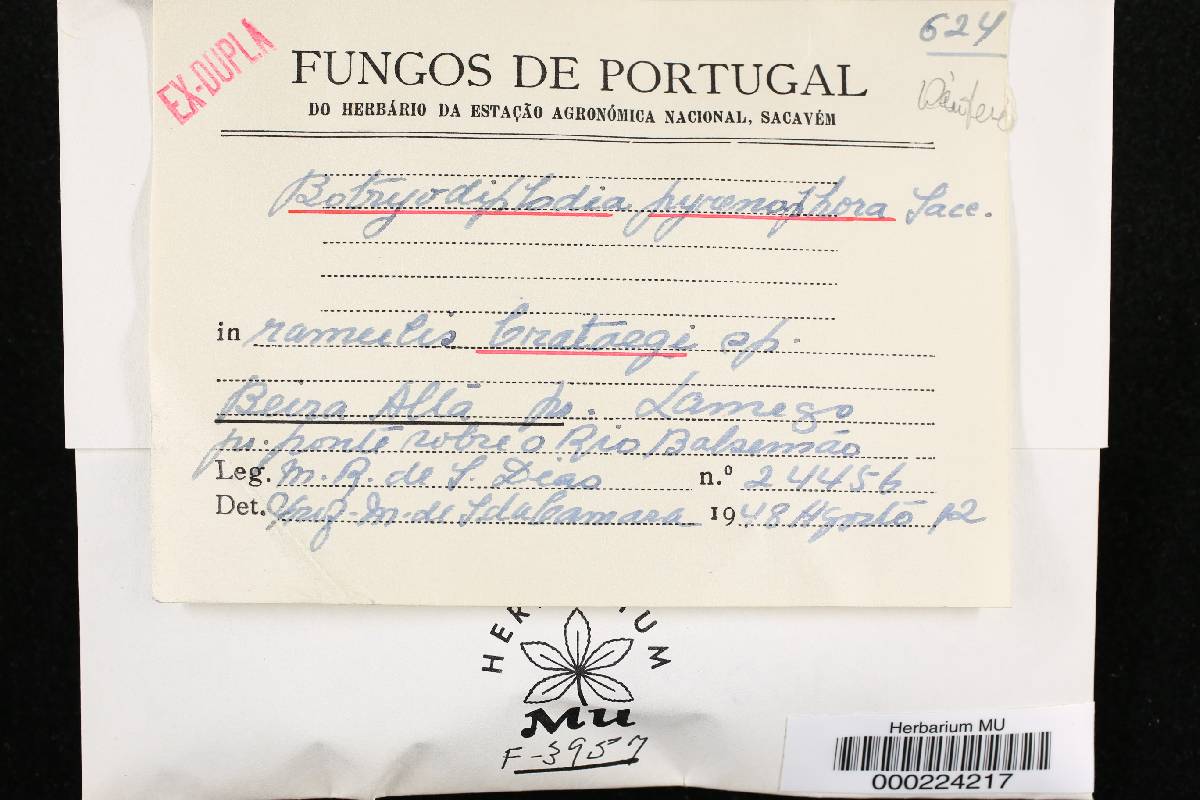 624
EX-DUPLA
FUNGOS DE PORTUGAL
DO HERBÁRIO DA ESTAÇÃO AGRONÓMICA NACIONAL, SACAVÉM
Botryodiplodia pyrenophora Sacc.
in ramulis Crataegi sp.
Beira Alta pr. Lamego
pr. ponte sobre o Rio Balsemão
Leg. M. R. de S. Dias n.º 24456
Det. M. de S. da Camara 1948 Agosto 12
HERBARIUM
MU
F-3957
Herbarium MU
000224217